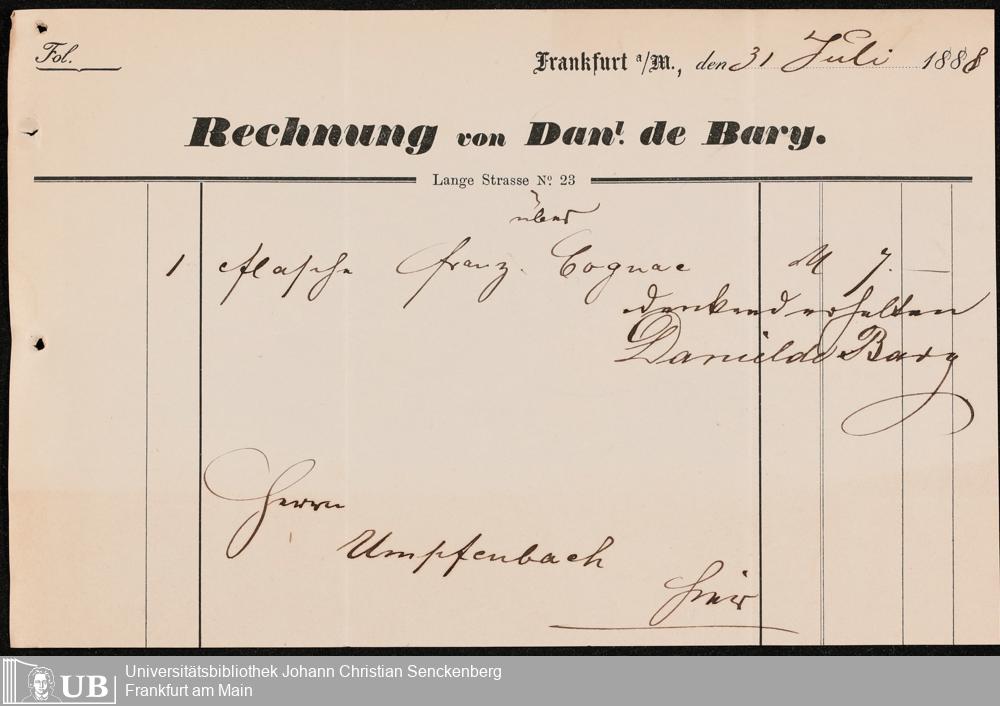 Fol.
Frankfurt a/M., den 31 Juli 1888
Rechnung von Danl. de Bary.
Lange Strasse No. 23
über
1 Flasche franz. Cognac M 7. —
dankend erhalten
Daniel de Bary
Herrn
Umpfenbach
hier
UB
Universitätsbibliothek Johann Christian Senckenberg
Frankfurt am Main